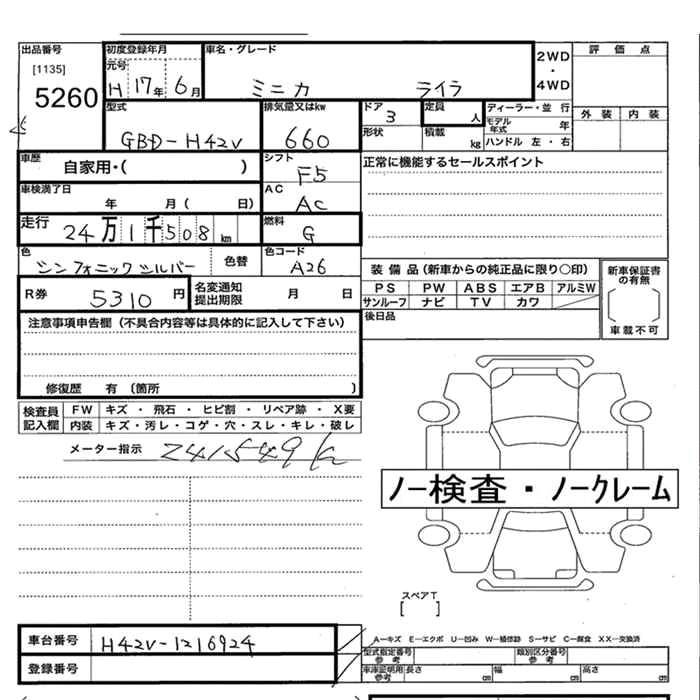 出品番号 初度登録年月 車名・グレード 2WD・4WD 評価点
[1135] 元号
5260 H 17年 6月 ミニカ ライラ
型式 排気量又はkw ドア 定員 ディーラー・並 行 外装 内装
3 人 モデル年式 年
GBD-H42V 660 形状 積載 kg ハンドル 左・右
車歴 自家用・( ) シフト F5 正常に機能するセールスポイント
車検満了日 年 月( 日) AC AC
走行 24万1千508km 燃料 G
色 シンフォニックシルバー 色替 色コード A26
装備品(新車からの純正品に限り○印) 新車保証書の有無
R券 5310円 名変通知提出期限 月 日 PS PW ABS エアB アルミW
サンルーフ ナビ TV カワ
注意事項申告欄(不具合内容等は具体的に記入して下さい) 後日品 車載不可
修復歴 有(箇所 )
検査員記入欄 FW キズ・飛石・ヒビ割・リペア跡・X要
内装 キズ・汚レ・コゲ・穴・スレ・キレ・破レ
メーター指示 241549K
ノー検査・ノークレーム
スペアT
[ ]
車台番号 H42V-1216924 A-キズ E-エクボ U-凹み W-補修跡 S-サビ C-腐食 XX-交換済
型式指定番号 参考 類別区分番号 参考
登録番号 車庫証明用 参考 長さ cm 幅 cm 高さ cm